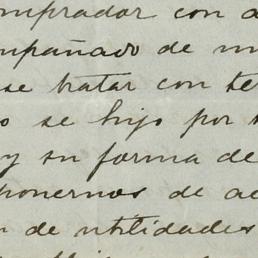 omprador con a
ompañado de m
se tratar con te
o se hizo por
y su forma de
ponernos de ac
n de utilidades